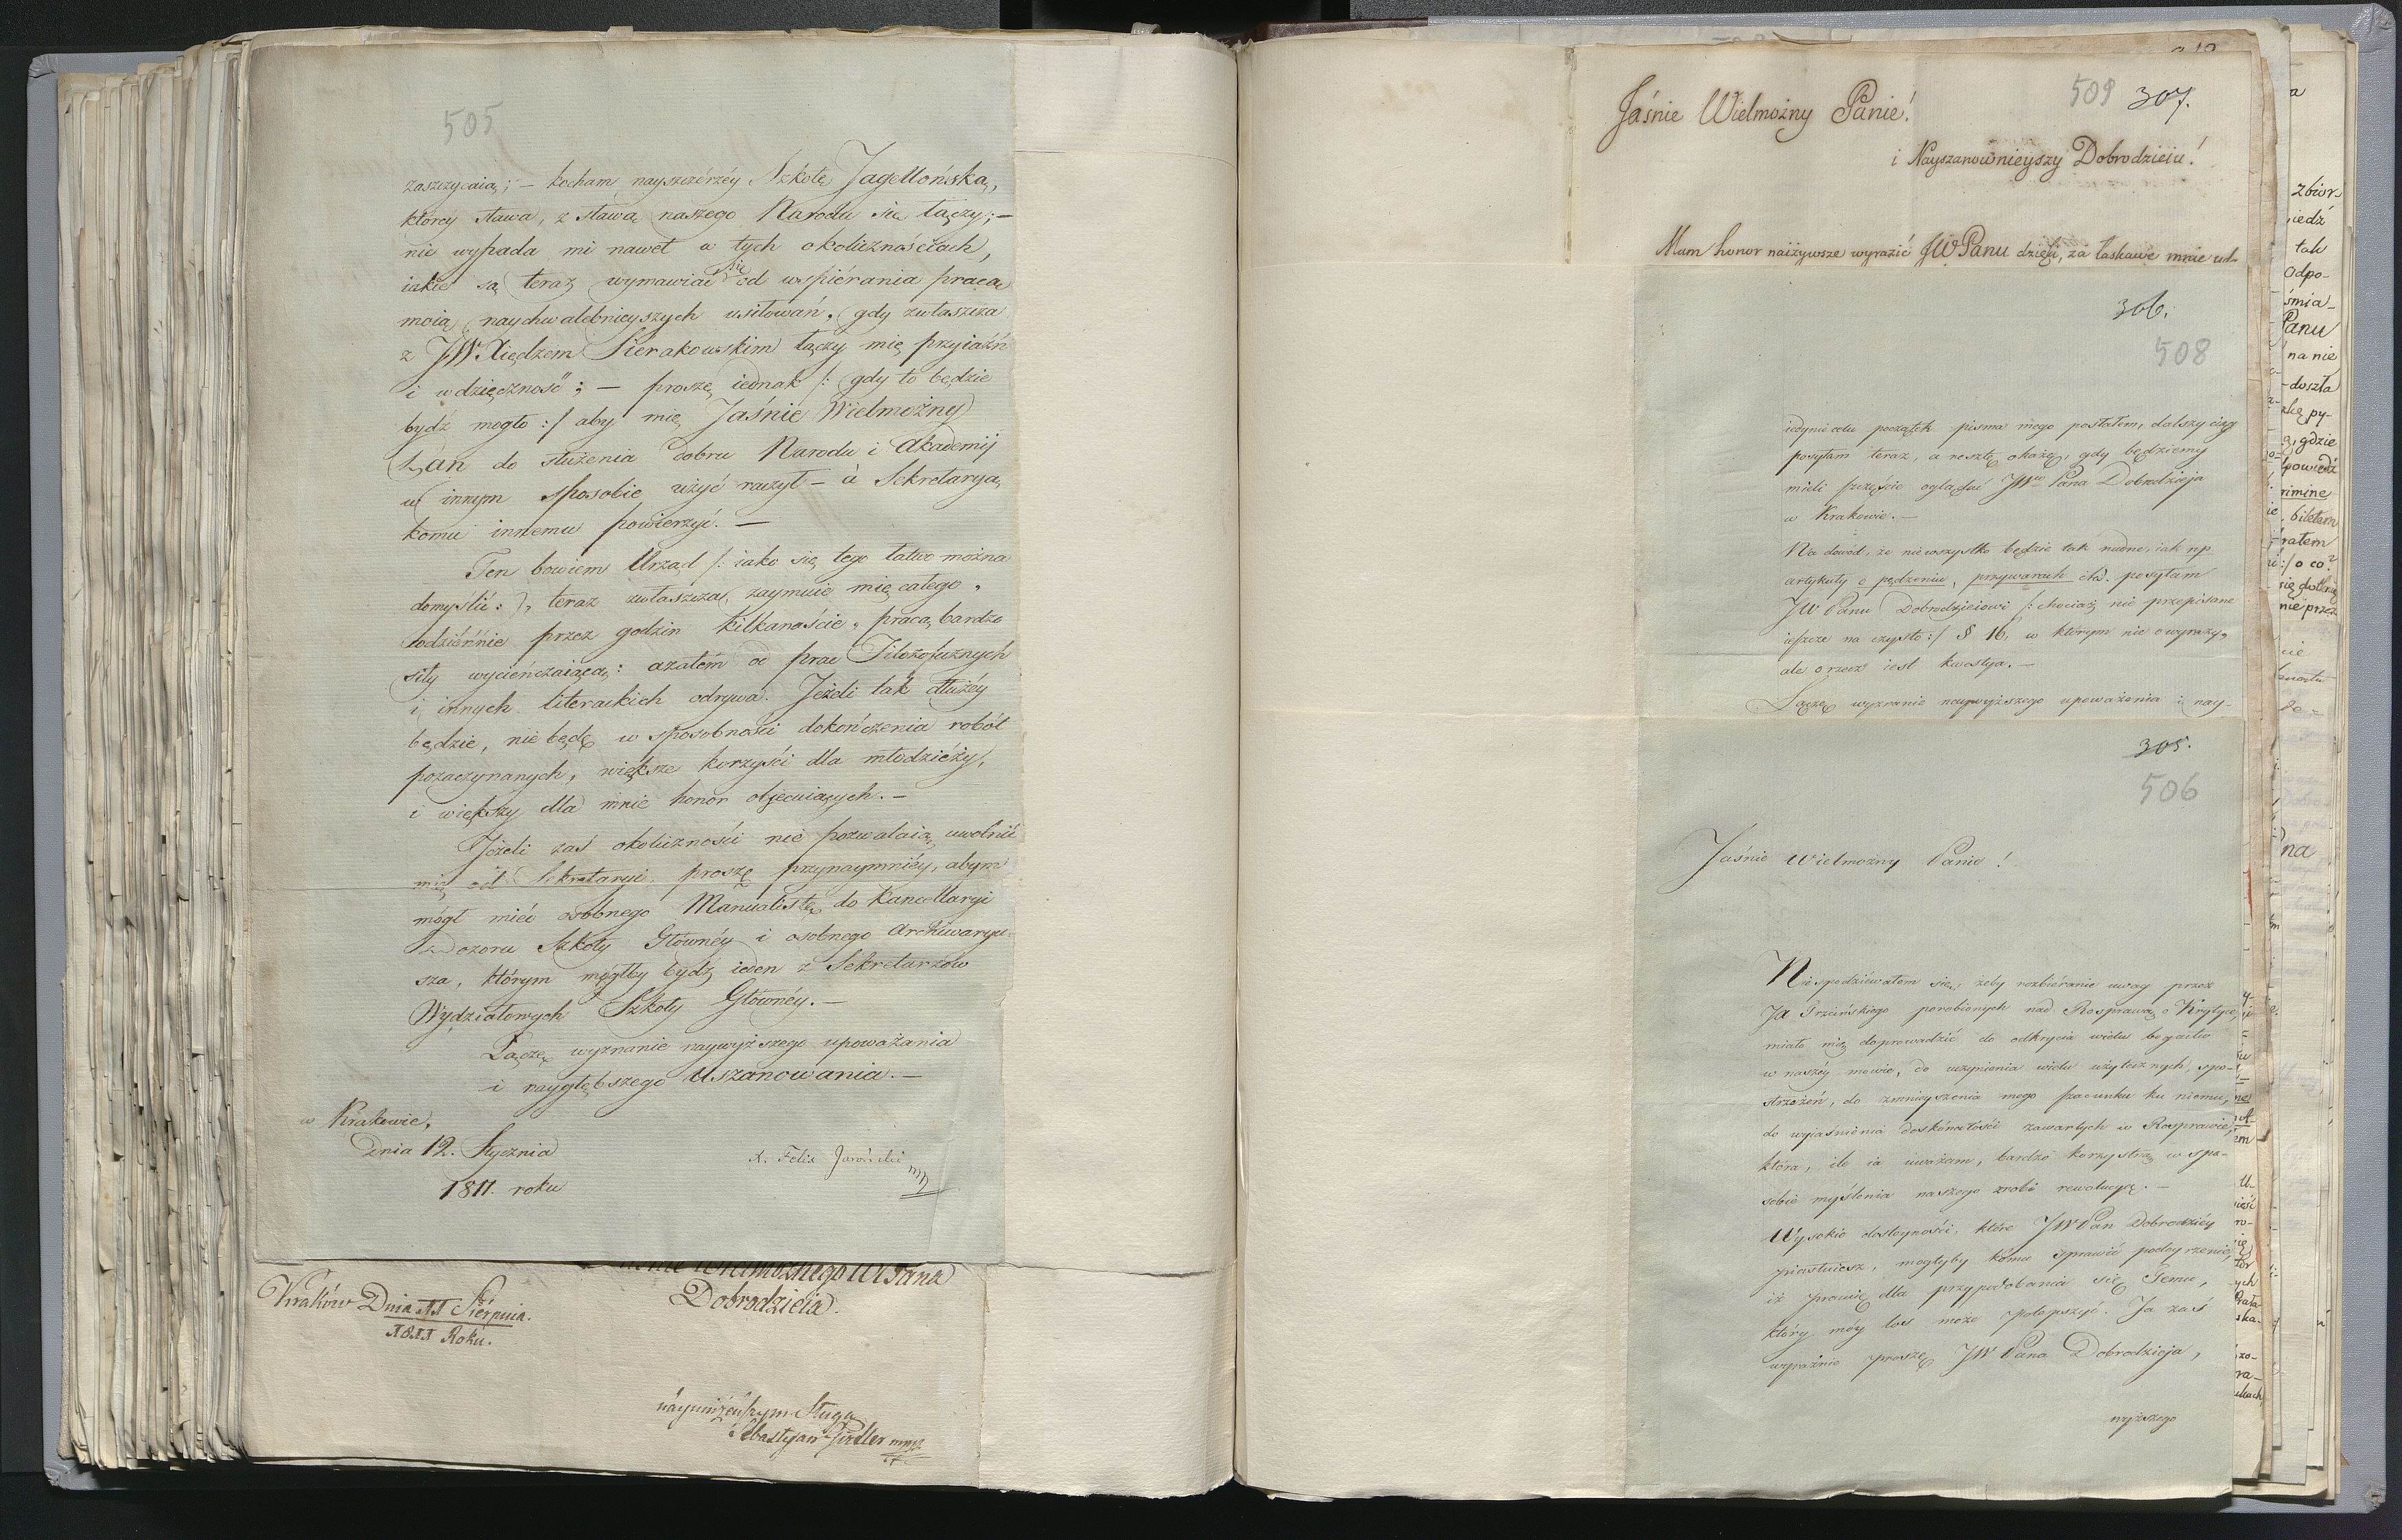 505
zaszczycaią; – kocham nayszczérzéy Szkołę Jagellońską,
któréy sława, z sławą naszego Narodu się łączy; –
nie wypada mi nawet w tych okolicznościach,
iakie są teraz wymawiać się od wspiérania pracą
moią naychwalebnieyszych usiłowań, gdy zwłaszcza
z JW. Xiędzem Sierakowskim łączy mię przyiaźń
i wdzięczność; – proszę iednak /: gdy to będzie
bydź mogło :/ aby mię Jaśnie Wielmożny
Pan do służenia dobru Narodu i Akademij
w innym sposobie użyć raczył – a Sekretaryą
komu innemu powierzyć. –
Ten bowiem Urząd /: iako się tego łatwo można
domyślić :/, teraz zwłaszcza, zaymuie mię całego,
codziénnie przez godzin kilkanaście, pracą bardzo
siły wycieńczaiącą: azatém od prac Filozoficznych
i innych literackich odrywa. Jeżeli tak dłużéy
będzie, nie będę w sposobności dokończenia robót
pozaczynanych, większe korzyści dla młodzieży,
i większy dla mnie honor obiecuiących. –
Jeżeli zaś okoliczności nie pozwalaią uwolnić
mię od Sekretaryi, proszę przynaymniéy, abym
mógł mieć osobnego Manualistę do Kancellaryi
Dozoru Szkoły Głównéy i osobnego Archiwaryu-
sza, którym mógłby bydź ieden z Sekretarzów
Wydziałowych Szkoły Głównéy. –
Łączę wyznanie naywyższego upoważania
i naygłębszego Uszanowania. –
w Krakowie,
Dnia 12. Stycznia
1811. roku
X. Felix Jaroński mp
Wielmożnego WPana
Dobrodzieia.
Kraków Dnia 11 Sierpnia.
1811 Roku.
nayuniżeńszym Sługą
Sebastyan Girtler mp
509 307.
Jaśnie Wielmożny Panie!
i Nayszanownieyszy Dobrodzieiu!
Mam honor naiżywsze wyrazić JWPanu dzięki, za łaskawe mnie
306.
508
iedynie celu początek pisma mego posłałem, dalszy ciąg
posyłam teraz, a resztę okażę, gdy będziemy
mieli szczęście oglądać JWgo Pana Dobrodzieja
w Krakowie. –
Na dowód, że nie wszystko będzie tak nudne, iak np
artykuły o pędzeniu, przywarach itd. posyłam
JWPanu Dobrodzieiowi /: chociaż nie przepisane
ieszcze na czysto :/ § 16, w którym nie o wyrazy,
ale o rzecz iest kwestya. –
Łączę wyznanie naywyższego upoważenia i nay-
305.
506
Jaśnie Wielmożny Panie!
Nie spodziéwałem się, żeby rozbiéranie uwag przez
JX Trzcińskiego porobionych nad Rosprawą o Krytyce,
miało mię doprowadzić do odkrycia wielu bogactw
w naszéy mowie, do uczynienia wielu użytecznych spo-
strzeżeń, do zmnieyszenia mego szacunku ku niemu,
do wyiaśnienia doskonałości zawartych w Rosprawie,
która, ile ia uważam, bardzo korzystną w spo-
sobie myślenia naszego zrobi rewolucyę. –
Wysokie dostoyności, które JWPan Dobrodziey
piastuiesz, mogłyby komu sprawić podeyrzenie,
iż prawię dla przypodobania się Temu,
który móy los może polepszyć. Ja zaś
wyraźnie proszę JWPana Dobrodzieja,
wyższego
zbior
tak
Odpo-
śmia-
Panu
na nie
-doszła
gdzie
biletem
/ o co?
nie przez
na